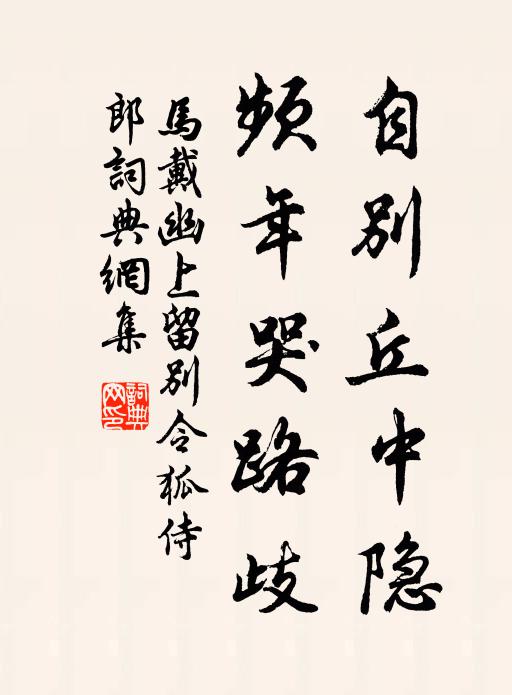 自别丘中隐
频年哭路歧
馬戴幽上留别令狐侍
郎詞典網集
詞典网印